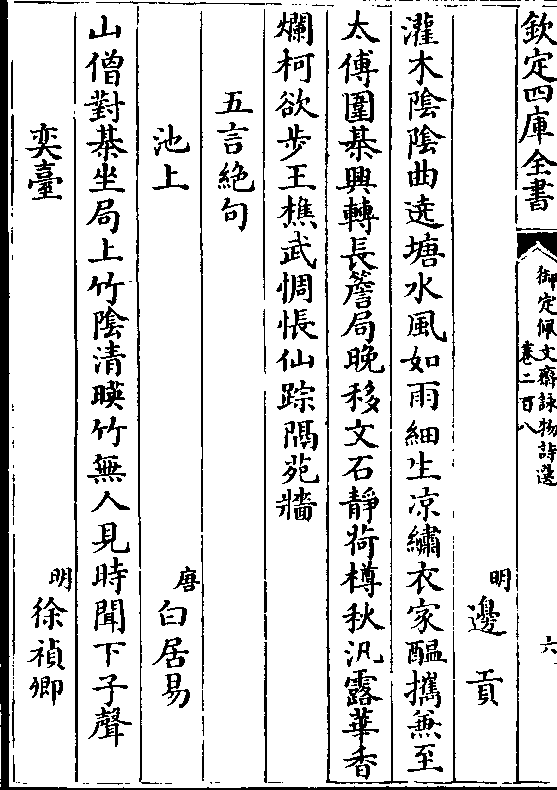 欽定四庫全書
御定佩文齋詠物詩選
卷二百八
六
明邊貢
灌木陰陰曲遶塘水風如雨細生凉繡衣家醖攜兼至
太傅圍棊興轉長簷局晚移文石靜荷樽秋汎露華香
爛柯欲步王樵武惆悵仙踪隔苑牆
五言絶句
池上
唐白居易
山僧對棊坐局上竹陰清暎竹無人見時聞下子聲
奕臺
明徐禎卿